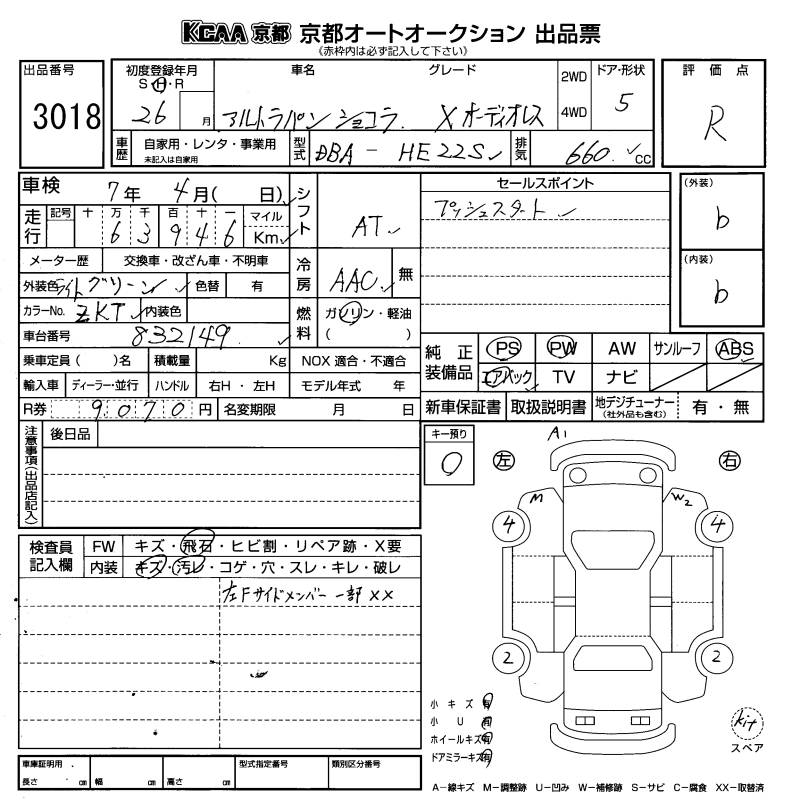 KCAA 京都 京都オートオークション 出品票
(赤枠内は必ず記入して下さい)
出品番号
3018
初度登録年月
S・H・R
26 月
車名
アルトラパン ショコラ
グレード
Xオーディオレス
2WD
4WD
ドア・形状
5
評価点
R
車歴
自家用・レンタ・事業用
未記入は自家用
型式
DBA - HE22S
排気
660 cc
車検 7年 4月( 日)
走行
記号 十 万 千 百 十 一 マイル
6 3 9 4 6 Km
メーター歴 交換車・改ざん車・不明車
外装色 ライトグリーン 色替 有
カラーNo. ZKT 内装色
車台番号 832149
乗車定員 ( )名 積載量 Kg
輸入車 ディーラー・並行 ハンドル 右H・左H
R券 9070円 名変期限 月 日
シフト AT
冷房 AAC 無
燃料 ガソリン・軽油
( )
NOX 適合・不適合
モデル年式 年
セールスポイント
プッシュスタート
(外装)
b
(内装)
b
純正装備品
PS PW AW サンルーフ ABS
エアバック TV ナビ
新車保証書 取扱説明書 地デジチューナー
(社外品も含む)
有・無
注意事項(出品店記入)
後日品
キー預り
0
検査員記入欄
FW キズ・飛石・ヒビ割・リペア跡・X要
内装 キズ・汚レ・コゲ・穴・スレ・キレ・破レ
左Fサイドメンバー 一部 XX
A1
左 右
M W2
4 4
2 2
小キズ 有
小U 有
ホイールキズ 有
ドアミラーキズ 有
kit
スペア
車庫証明用
長さ cm 幅 cm 高さ cm
型式指定番号
類別区分番号
A-線キズ M-調整跡 U-凹み W-補修跡 S-サビ C-腐食 XX-取替済